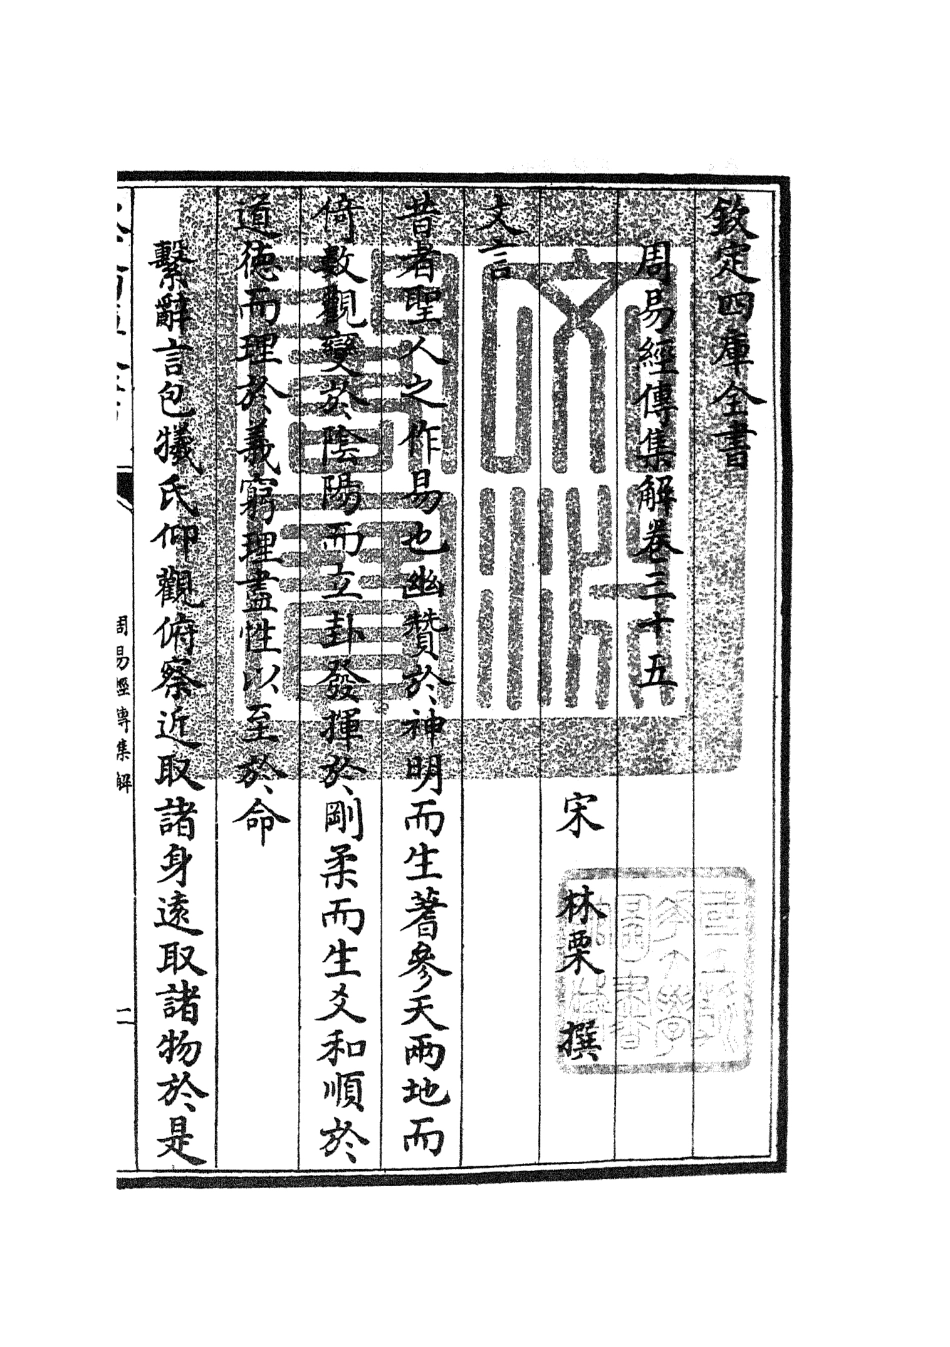 欽定四庫全書
周易經傳集解卷三十五
宋 林栗 撰
文言
昔者聖人之作易也幽贊於神明而生蓍參天兩地而
倚數觀變於陰陽而立卦發揮於剛柔而生爻和順於
道德而理於義窮理盡性以至於命
繫辭言包犧氏仰觀俯察近取諸身遠取諸物於是
周易經傳集解